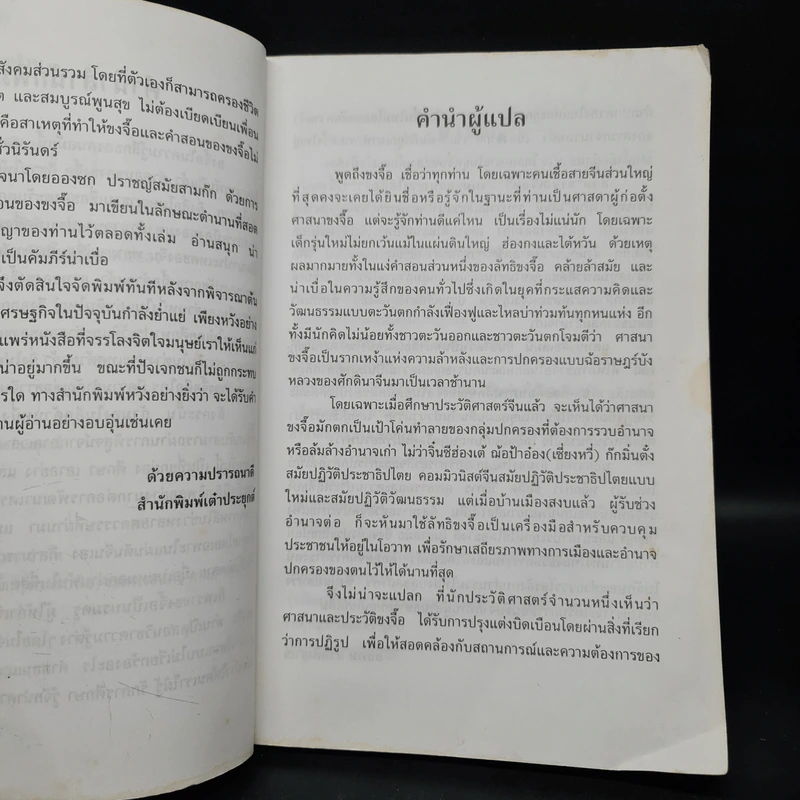 สังคมส่วนรวม โดยที่ตัวเองก็สามารถครองชีวิต
และสมบูรณ์พูนสุข ไม่ต้องเบียดเบียนเพื่อน
คือสาเหตุที่ทำให้ขงจื๊อและคำสอนของขงจื๊อไม่
ชั่วนิรันดร์
จนาโดยอองซก ปราชญ์สมัยสามก๊ก ด้วยการ
อนของขงจื๊อ มาเขียนในลักษณะตำนานที่สอด
ญาของท่านไว้ตลอดทั้งเล่ม อ่านสนุก น่า
เป็นคัมภีร์น่าเบื่อ
จึงตัดสินใจจัดพิมพ์ทันทีหลังจากพิจารณาต้น
ศรษฐกิจในปัจจุบันกำลังย่ำแย่ เพียงหวังอย่าง
แพร่หนังสือที่จรรโลงจิตใจมนุษย์เราให้เห็นแก่
น่าอยู่มากขึ้น ขณะที่ปัจเจกชนก็ไม่ถูกกระทบ
ารใด ทางสำนักพิมพ์หวังอย่างยิ่งว่า จะได้รับคำ
านผู้อ่านอย่างอบอุ่นเช่นเคย
ด้วยความปรารถนาดี
สำนักพิมพ์เต๋าประยุกต์
คำนำผู้แปล
พูดถึงขงจื๊อ เชื่อว่าทุกท่าน โดยเฉพาะคนเชื้อสายจีนส่วนใหญ่
ที่สุดคงจะเคยได้ยินชื่อหรือรู้จักในฐานะที่ท่านเป็นศาสดาผู้ก่อตั้ง
ศาสนาขงจื๊อ แต่จะรู้จักท่านดีแค่ไหน เป็นเรื่องไม่แน่นัก โดยเฉพาะ
เด็กรุ่นใหม่ไม่ยกเว้นแม้ในแผ่นดินใหญ่ ฮ่องกงและไต้หวัน ด้วยเหตุ
ผลมากมายทั้งในแง่คำสอนส่วนหนึ่งของลัทธิขงจื๊อ คล้ายล้าสมัย และ
น่าเบื่อในความรู้สึกของคนทั่วไปซึ่งเกิดในยุคที่กระแสความคิดและ
วัฒนธรรมแบบตะวันตกกำลังเฟื่องฟูและไหลบ่าท่วมท้นทุกหนแห่ง อีก
ทั้งมีนักคิดไม่น้อยทั้งชาวตะวันออกและชาวตะวันตกโจมตีว่า ศาสนา
ขงจื๊อเป็นรากเหง้าแห่งความล้าหลังและการปกครองแบบฉ้อราษฎร์บัง
หลวงของศักดินาจีนมาเป็นเวลาช้านาน
โดยเฉพาะเมื่อศึกษาประวัติศาสตร์จีนแล้ว จะเห็นได้ว่าศาสนา
ขงจื๊อมักตกเป็นเป้าโค่นทำลายของกลุ่มปกครองที่ต้องการรวบอำนาจ
หรือล้มล้างอำนาจเก่า ไม่ว่าจิ๋นซีฮ่องเต้ ฌ้อป้าอ๋อง(เซี่ยงหวี่) ก๊กมิ่นตั๋ง
สมัยปฏิวัติประชาธิปไตย คอมมิวนิสต์จีนสมัยปฏิวัติประชาธิปไตยแบบ
ใหม่และสมัยปฏิวัติวัฒนธรรม แต่เมื่อบ้านเมืองสงบแล้ว ผู้รับช่วง
อำนาจต่อ ก็จะหันมาใช้ลัทธิขงจื๊อเป็นเครื่องมือสำหรับควบคุม
ประชาชนให้อยู่ในโอวาท เพื่อรักษาเสถียรภาพทางการเมืองและอำนาจ
ปกครองของตนไว้ให้ได้นานที่สุด
จึงไม่น่าจะแปลก ที่นักประวัติศาสตร์จำนวนหนึ่งเห็นว่า
ศาสนาและประวัติขงจื๊อ ได้รับการปรุงแต่งบิดเบือนโดยผ่านสิ่งที่เรียก
ว่าการปฏิรูป เพื่อให้สอดคล้องกับสถานการณ์และความต้องการของ